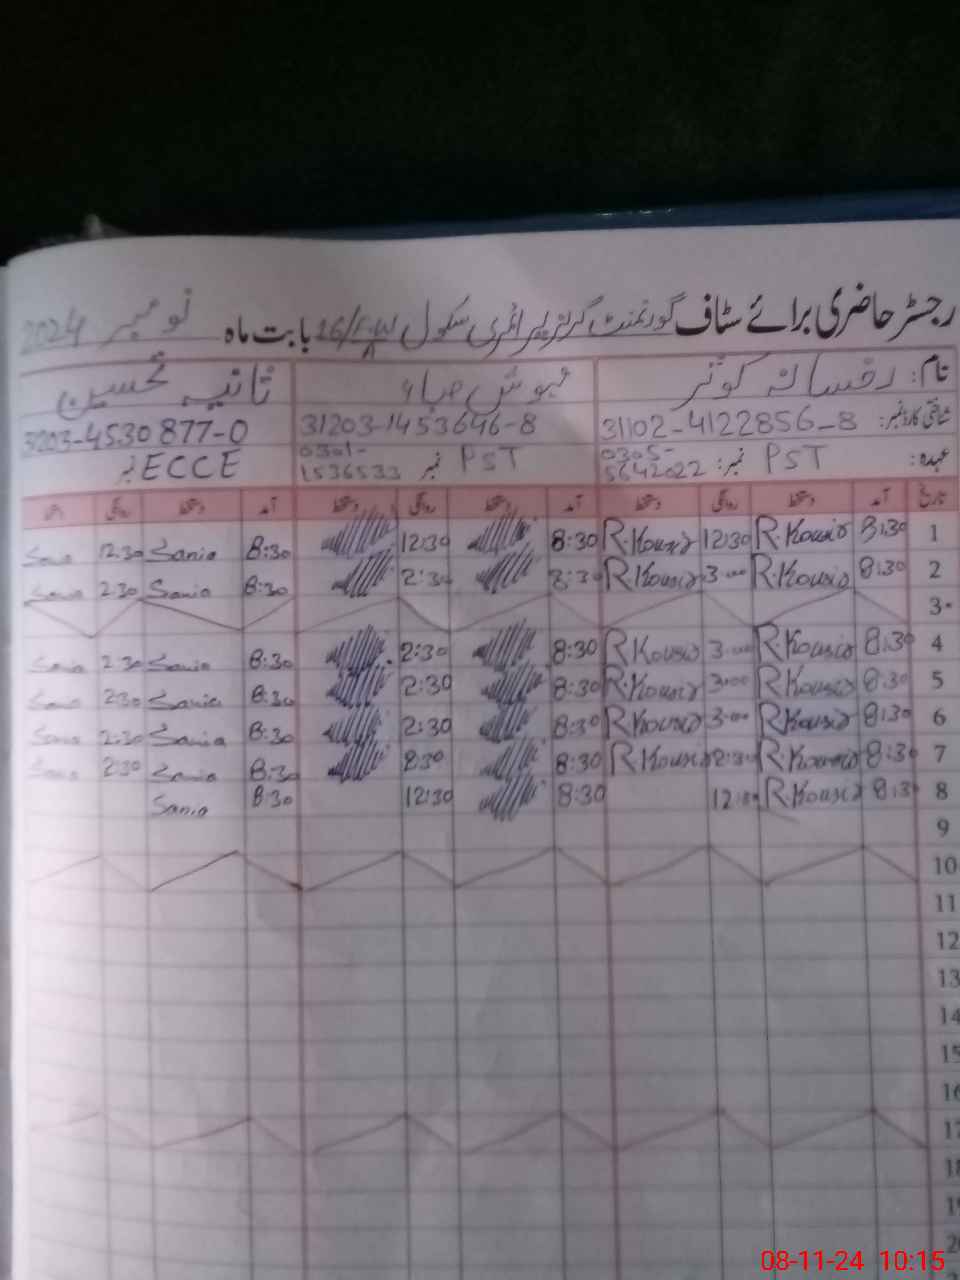 رجسٹر حاضری برائے سٹاف گورنمنٹ گرلز پرائمری سکول 16/ بابت ماہ نومبر 2024
نام: رخسانہ کوثر ہوش صباء ثانیہ تحسین
شناختی کارڈ نمبر: 31102-4122856-8 31203-1453646-8 3203-4530877-0
عہدہ: PST نمبر: 0305-5642022 PST نمبر 0301-1536533 ECCE نمبر
تاریخ آمد دستخط روانگی دستخط آمد دستخط روانگی دستخط آمد دستخط روانگی
1 8:30 R.Kousir 12:30 R.Kousir 8:30 12:30 8:30 Sania 12:30 Sania
2 8:30 R.Kousir 3:00 R.Kousir 8:30 2:30 8:30 Sania 2:30 Sania
3
4 8:30 R.Kousir 3:00 R.Kousir 8:30 2:30 8:30 Sania 2:30 Sania
5 8:30 R.Kousir 3:00 R.Kousir 8:30 2:30 8:30 Sania 2:30 Sania
6 8:30 R.Kousir 3:00 R.Kousir 8:30 2:30 8:30 Sania 2:30 Sania
7 8:30 R.Kousir 2:30 R.Kousir 8:30 2:30 8:30 Sania 2:30 Sania
8 8:30 R.Kousir 12:30 8:30 12:30 8:30 Sania
9
10
11
12
13
14
15
16
17
18
19
20
08-11-24 10:15